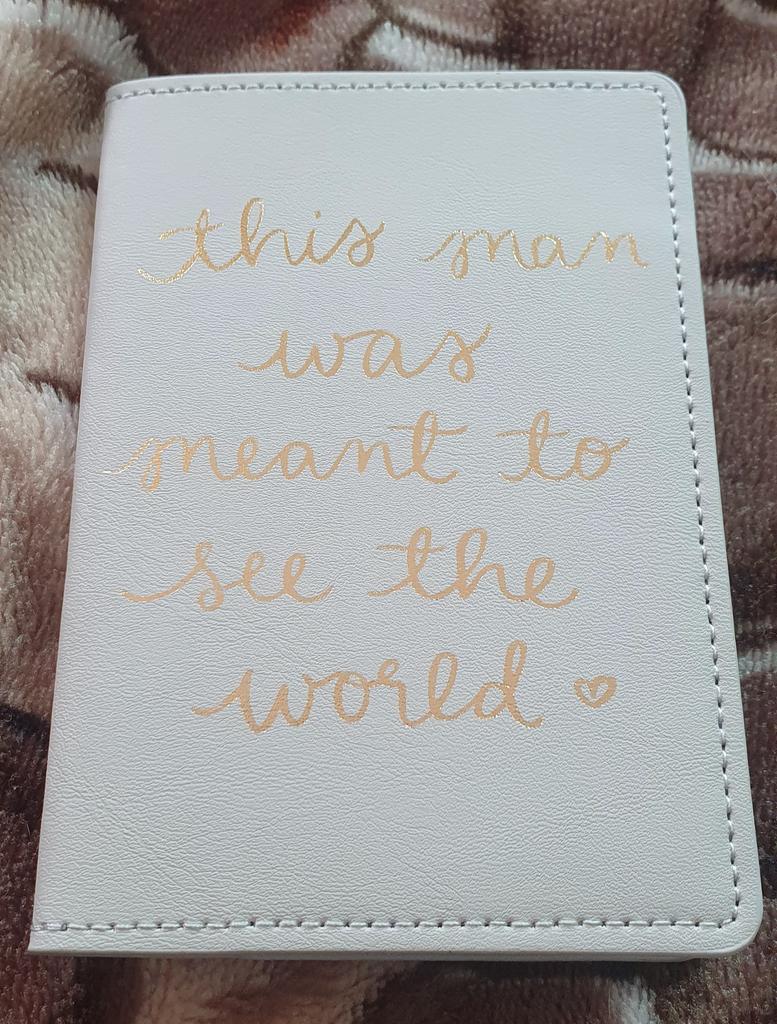 this man
was
meant to
see the
world ♡